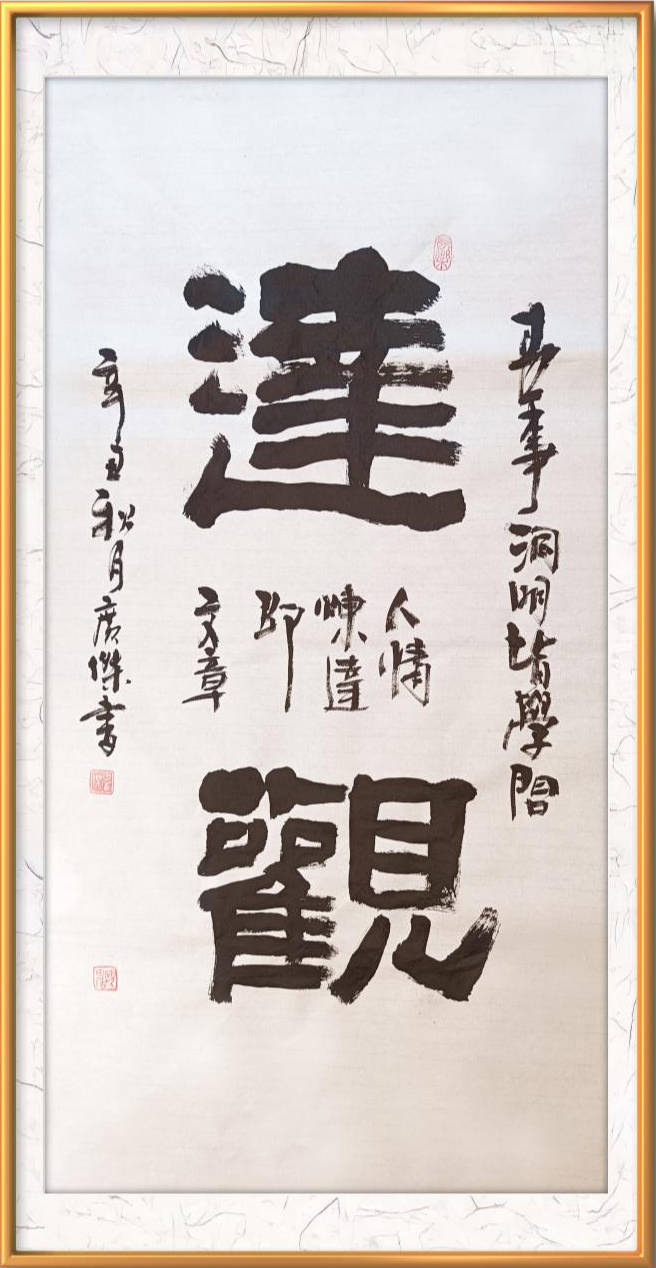 達觀
世事洞明皆學問
人情
煉達
即
文章
辛丑秋月廣傑書